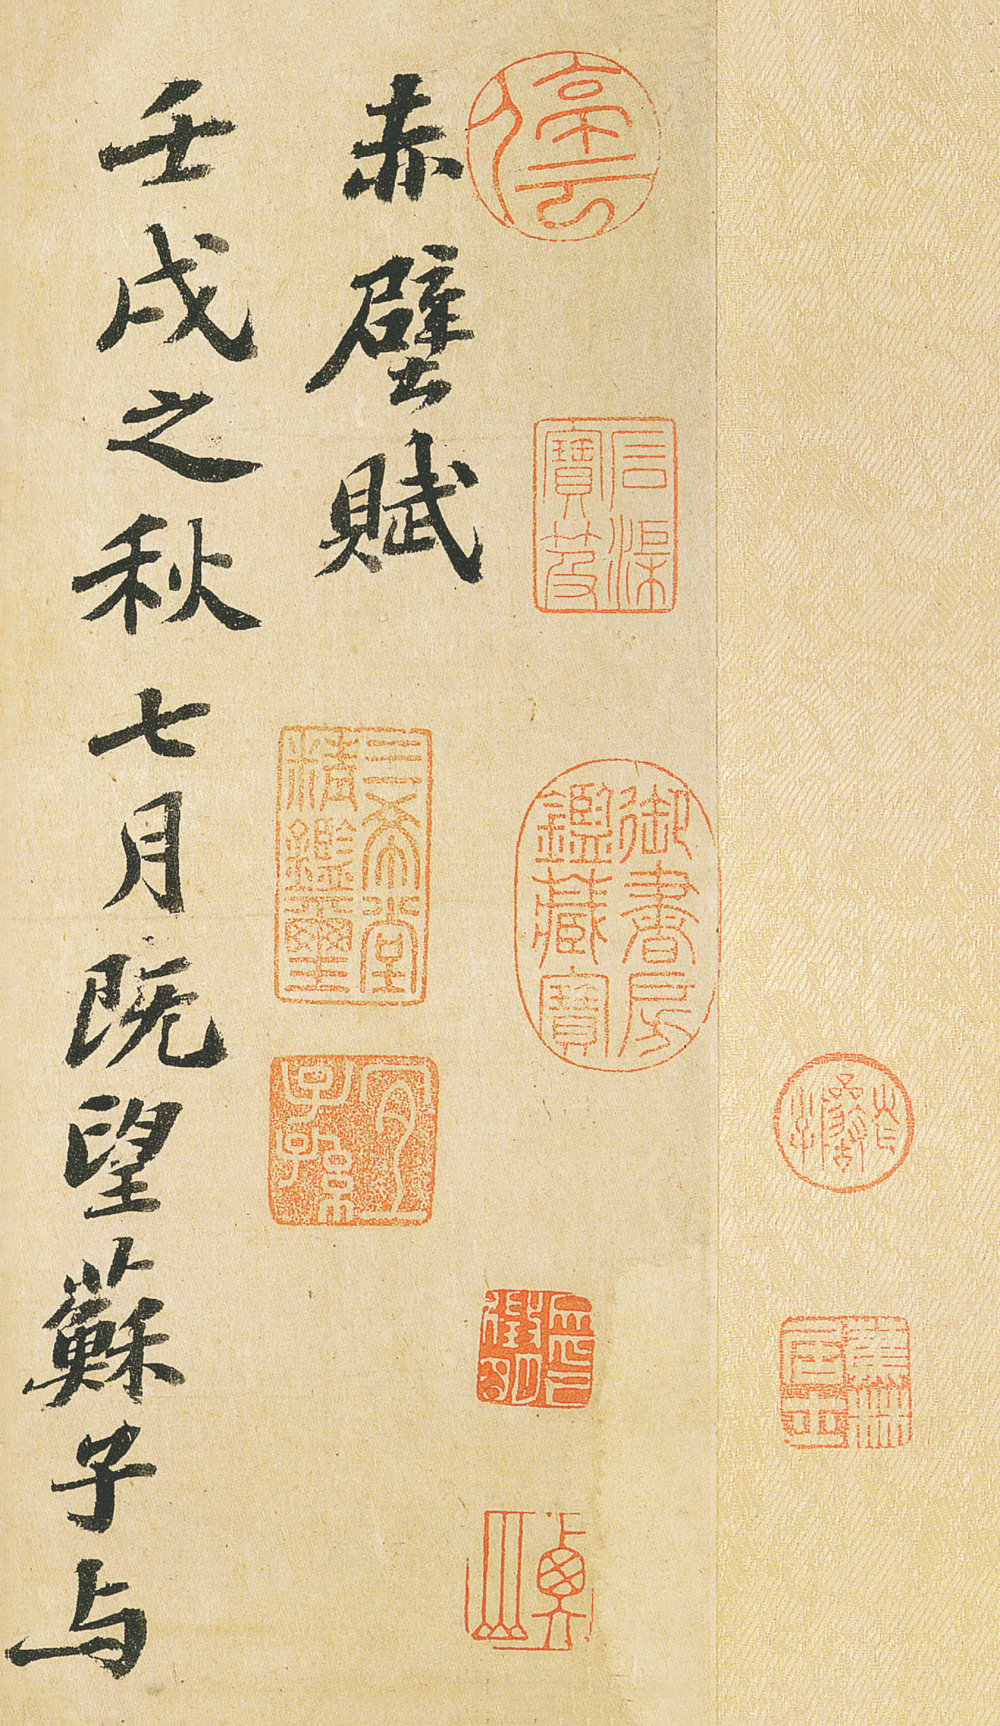 蕉林
居士
停雲
石渠
寶笈
御書房
鑑藏寶
赤壁賦
三希堂
精鑑璽
宜
子孫
壬戌之秋七月既望蘇子与